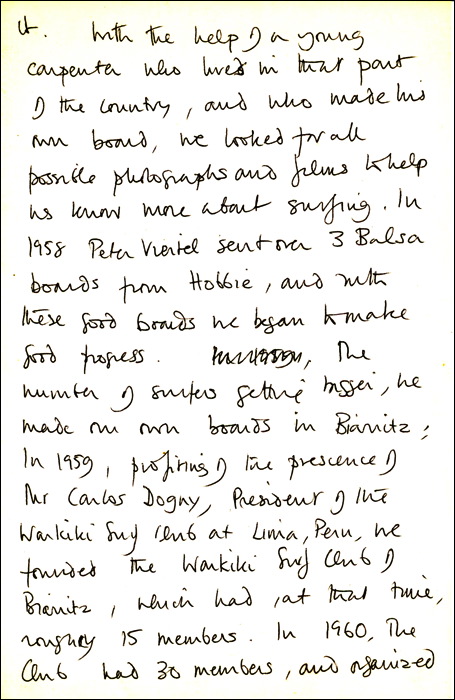 it. With the help of a young
carpenter who lived in that part
of the country, and who made his
own board, we looked for all
possible photographs and films to help
us know more about surfing. In
1958 Peter Viertel sent over 3 Balsa
boards from Hobbie, and with
these good boards we began to make
good progress. The
number of surfers getting bigger, we
made our own boards in Biarritz;
In 1959, profiting of the prescence of
Mr Carlos Dogny, President of the
Waikiki Surf Club at Lima, Peru, we
founded the Waikiki Surf Club of
Biarritz, which had, at that time,
roughly 15 members. In 1960, The
Club had 30 members, and organized